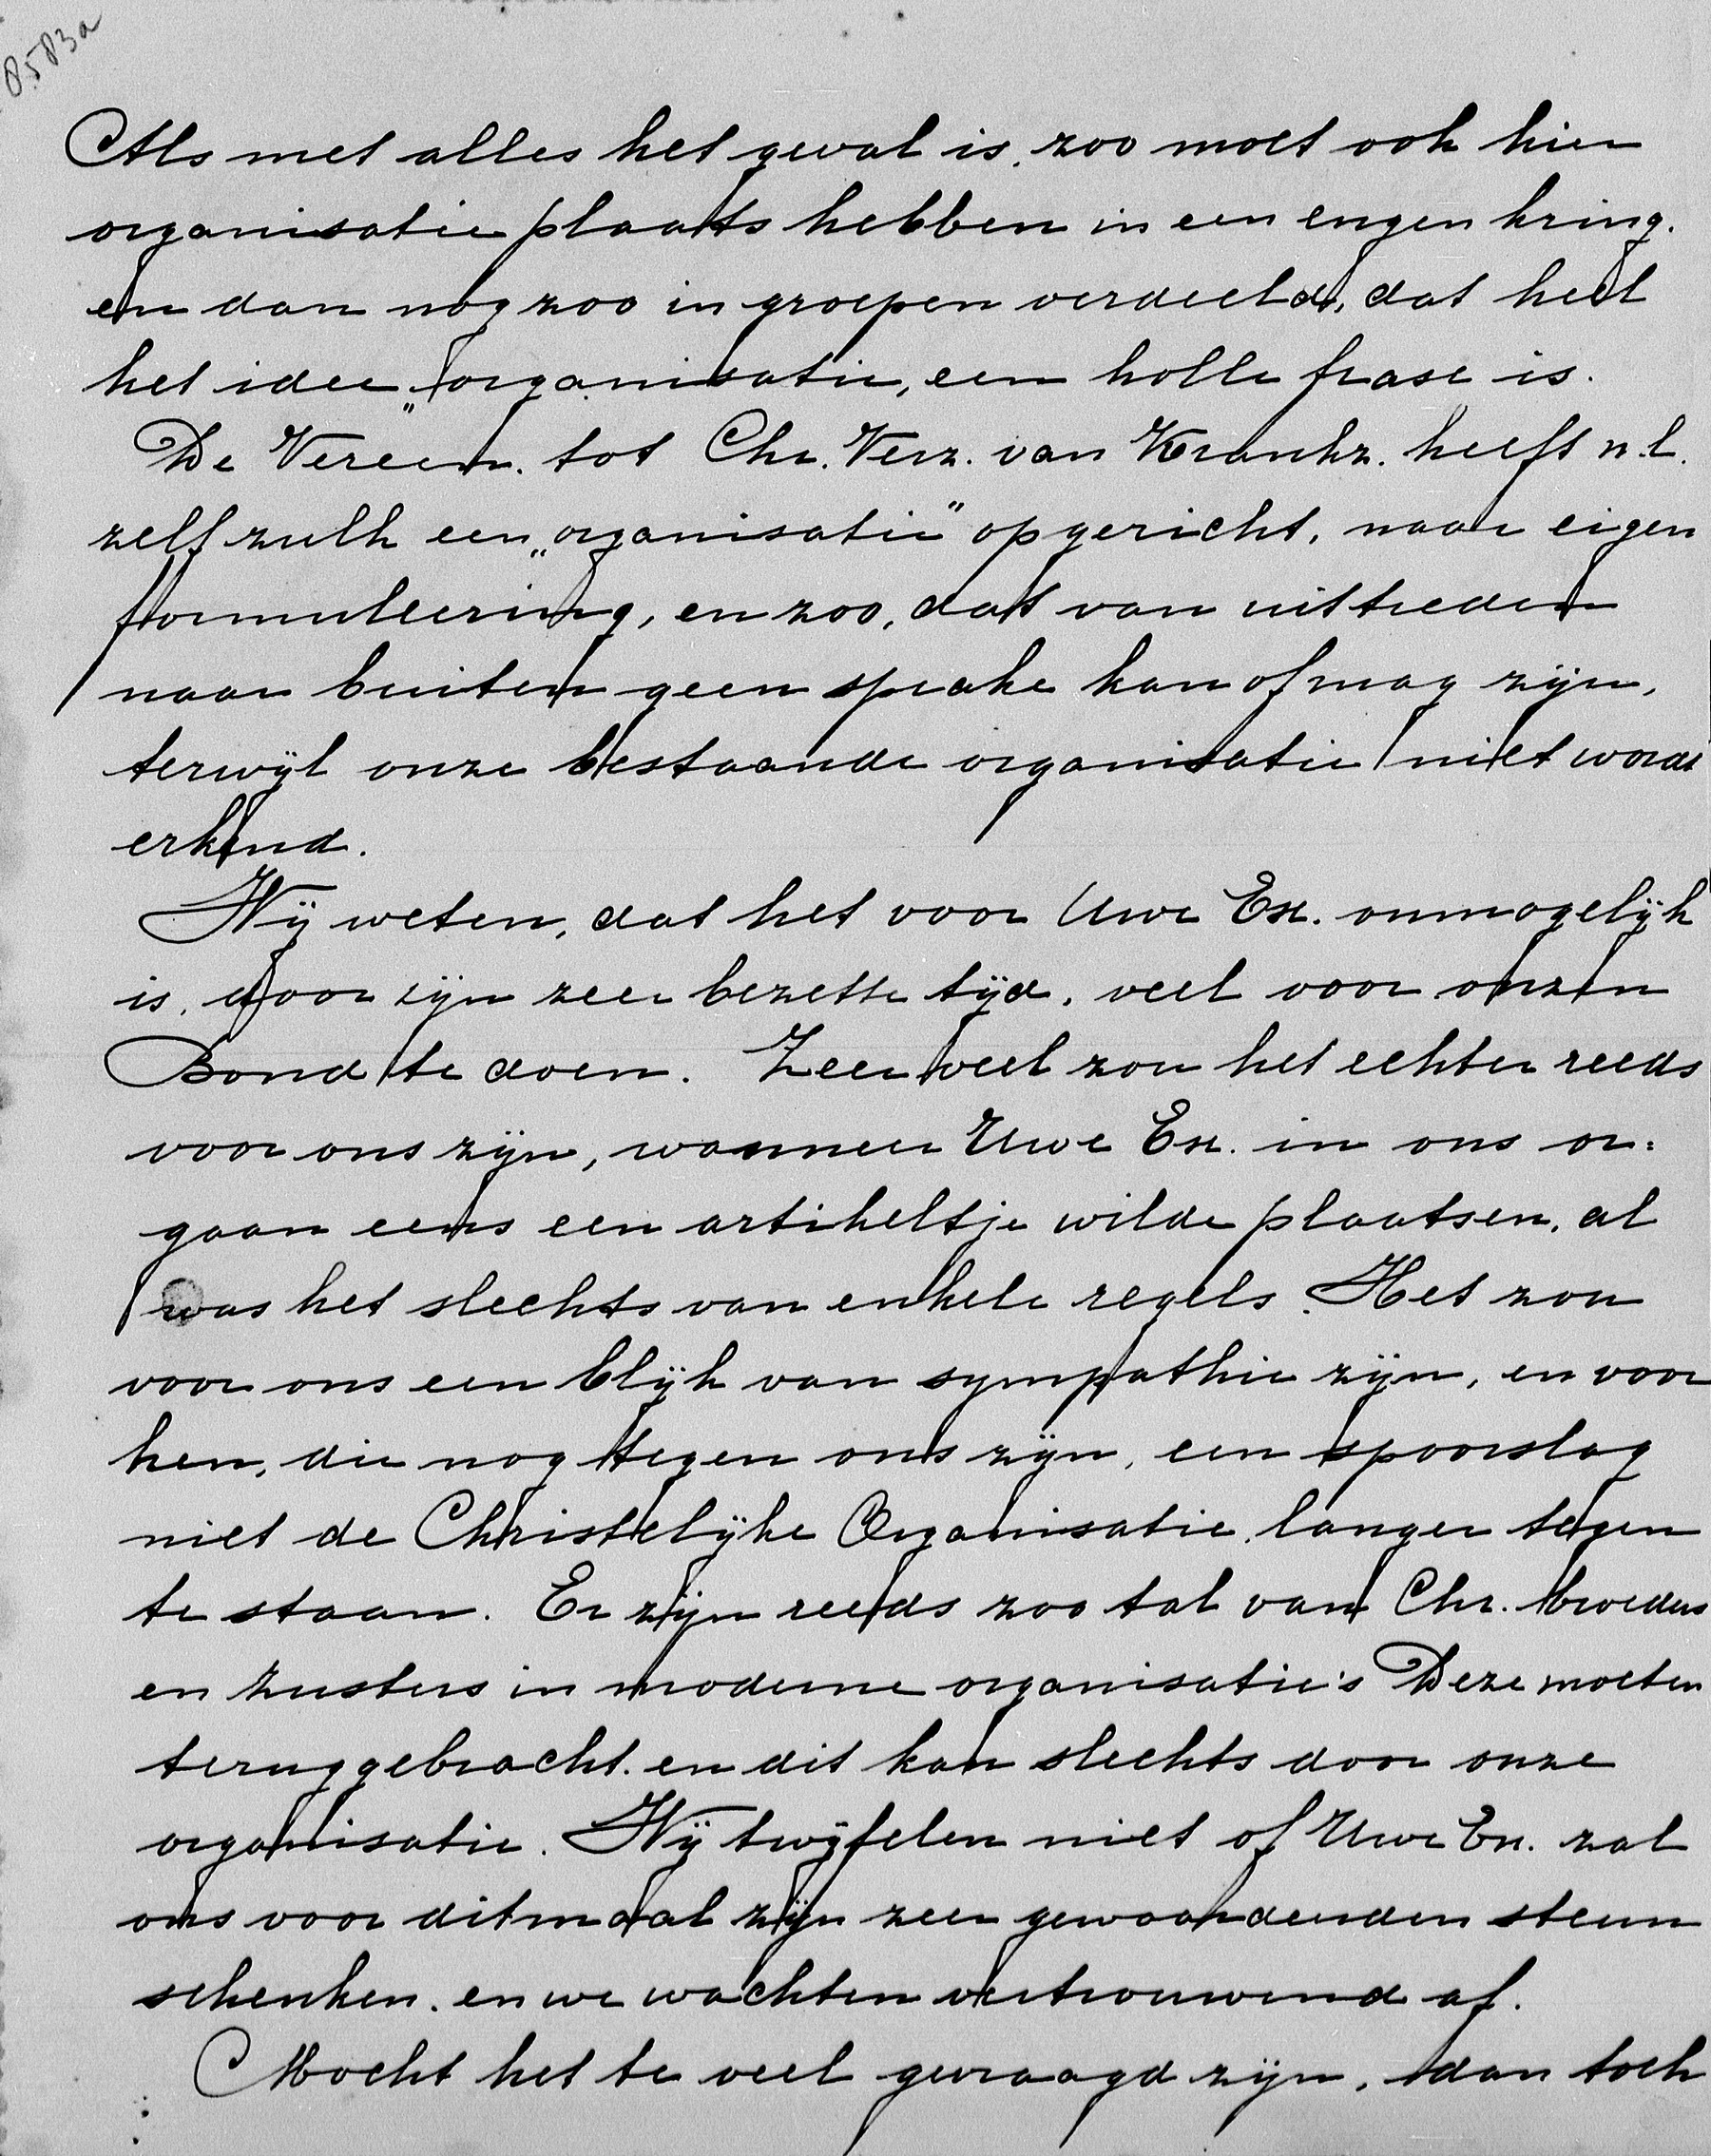 8583a
Als met alles het geval is, zoo moet ook hier
organisatie plaats hebben in een engen kring.
en dan nog zoo in groepen verdeeld, dat heel
het idee „organisatie, een holle frase is.
De Vereen. tot Chr. Verz. van Krankz. heeft n.l.
zelf zulk een „organisatie" opgericht, naar eigen
formuleering, en zoo, dat van uittreden
naar buiten geen sprake kan of mag zijn,
terwijl onze bestaande organisatie niet wordt
erkend.
Wij weten, dat het voor Uwe Ex. onmogelijk
is, door zijn zeer bezette tijd, veel voor onzen
Bond te doen. Zeer veel zou het echter reeds
voor ons zijn, wanneer Uwe Ex. in ons or:
gaan eens een artikeltje wilde plaatsen, al
was het slechts van enkele regels. Het zou
voor ons een blijk van sympathie zijn, en voor
hen, die nog tegen ons zijn, een spoorslag
niet de Christelijke Organisatie langer tegen
te staan. Er zijn reeds zoo tal van Chr. broeders
en zusters in moderne organisatie's Deze moeten
teruggebracht. en dit kan slechts door onze
organisatie. Wij twijfelen niet of Uwe Ex. zal
ons voor ditmaal zijn zeer gewaardeerden steun
schenken. en we wachten vertrouwend af.
Mocht het te veel gevraagd zijn, dan toch